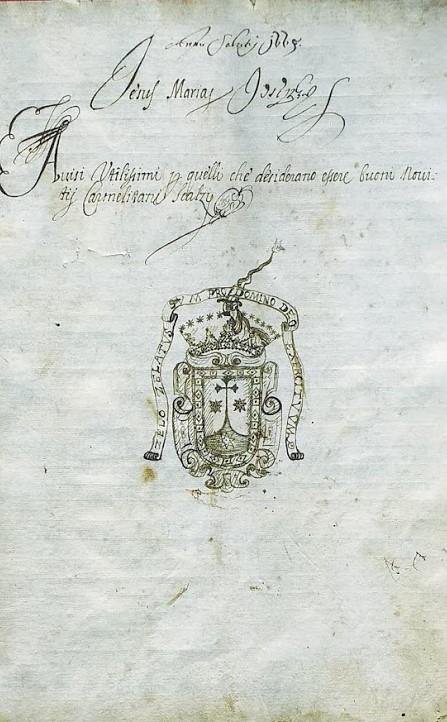 Anno Salutis
Jesus Maria Joseph
Avisi Utilissimi p quelli che desiderano essere buoni Novi-
tij Carmelitani Scalzi
ZELO ZELATUS SUM PRO DOMINO DEO EXERCITUUM